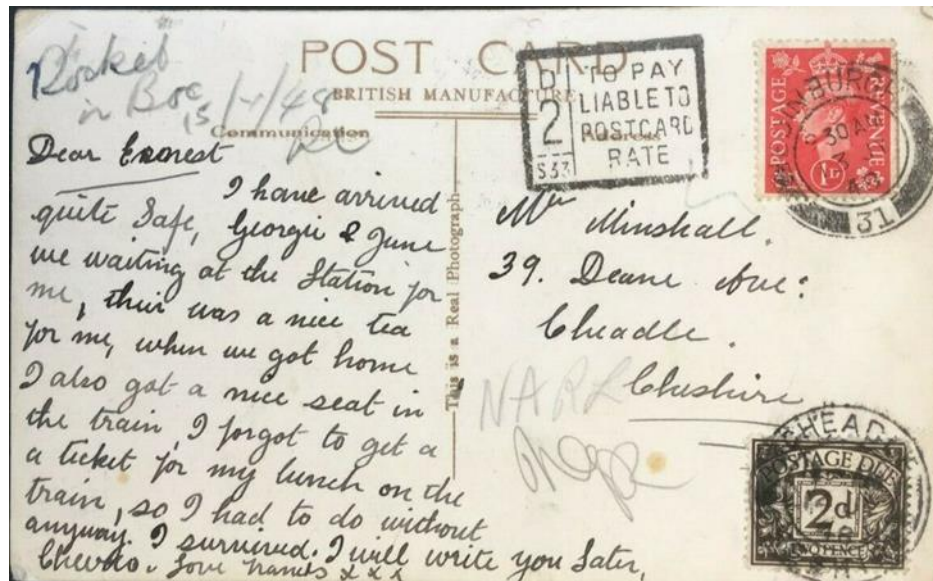 POST CARD
BRITISH MANUFACTURE
Communication
Address
This is a Real Photograph
in Box
D
2
S33
TO PAY
LIABLE TO
POSTCARD
RATE
POSTAGE REVENUE
1D
EDINBURGH
30 AM
3
48
31
Dear Ernest
I have arrived
quite Safe, Georgie & June
we waiting at the Station for
me, their was a nice tea
for me, when we got home
I also got a nice seat in
the train, I forgot to get a
a ticket for my lunch on the
train, so I had to do without
anyway. I survived. I will write you later,
Cheerio. Love
x x x
Mr Minshall.
39. Deane Ave:
Cheadle.
Cheshire
CHEAD
POSTAGE DUE
2d.
TWO PENCE